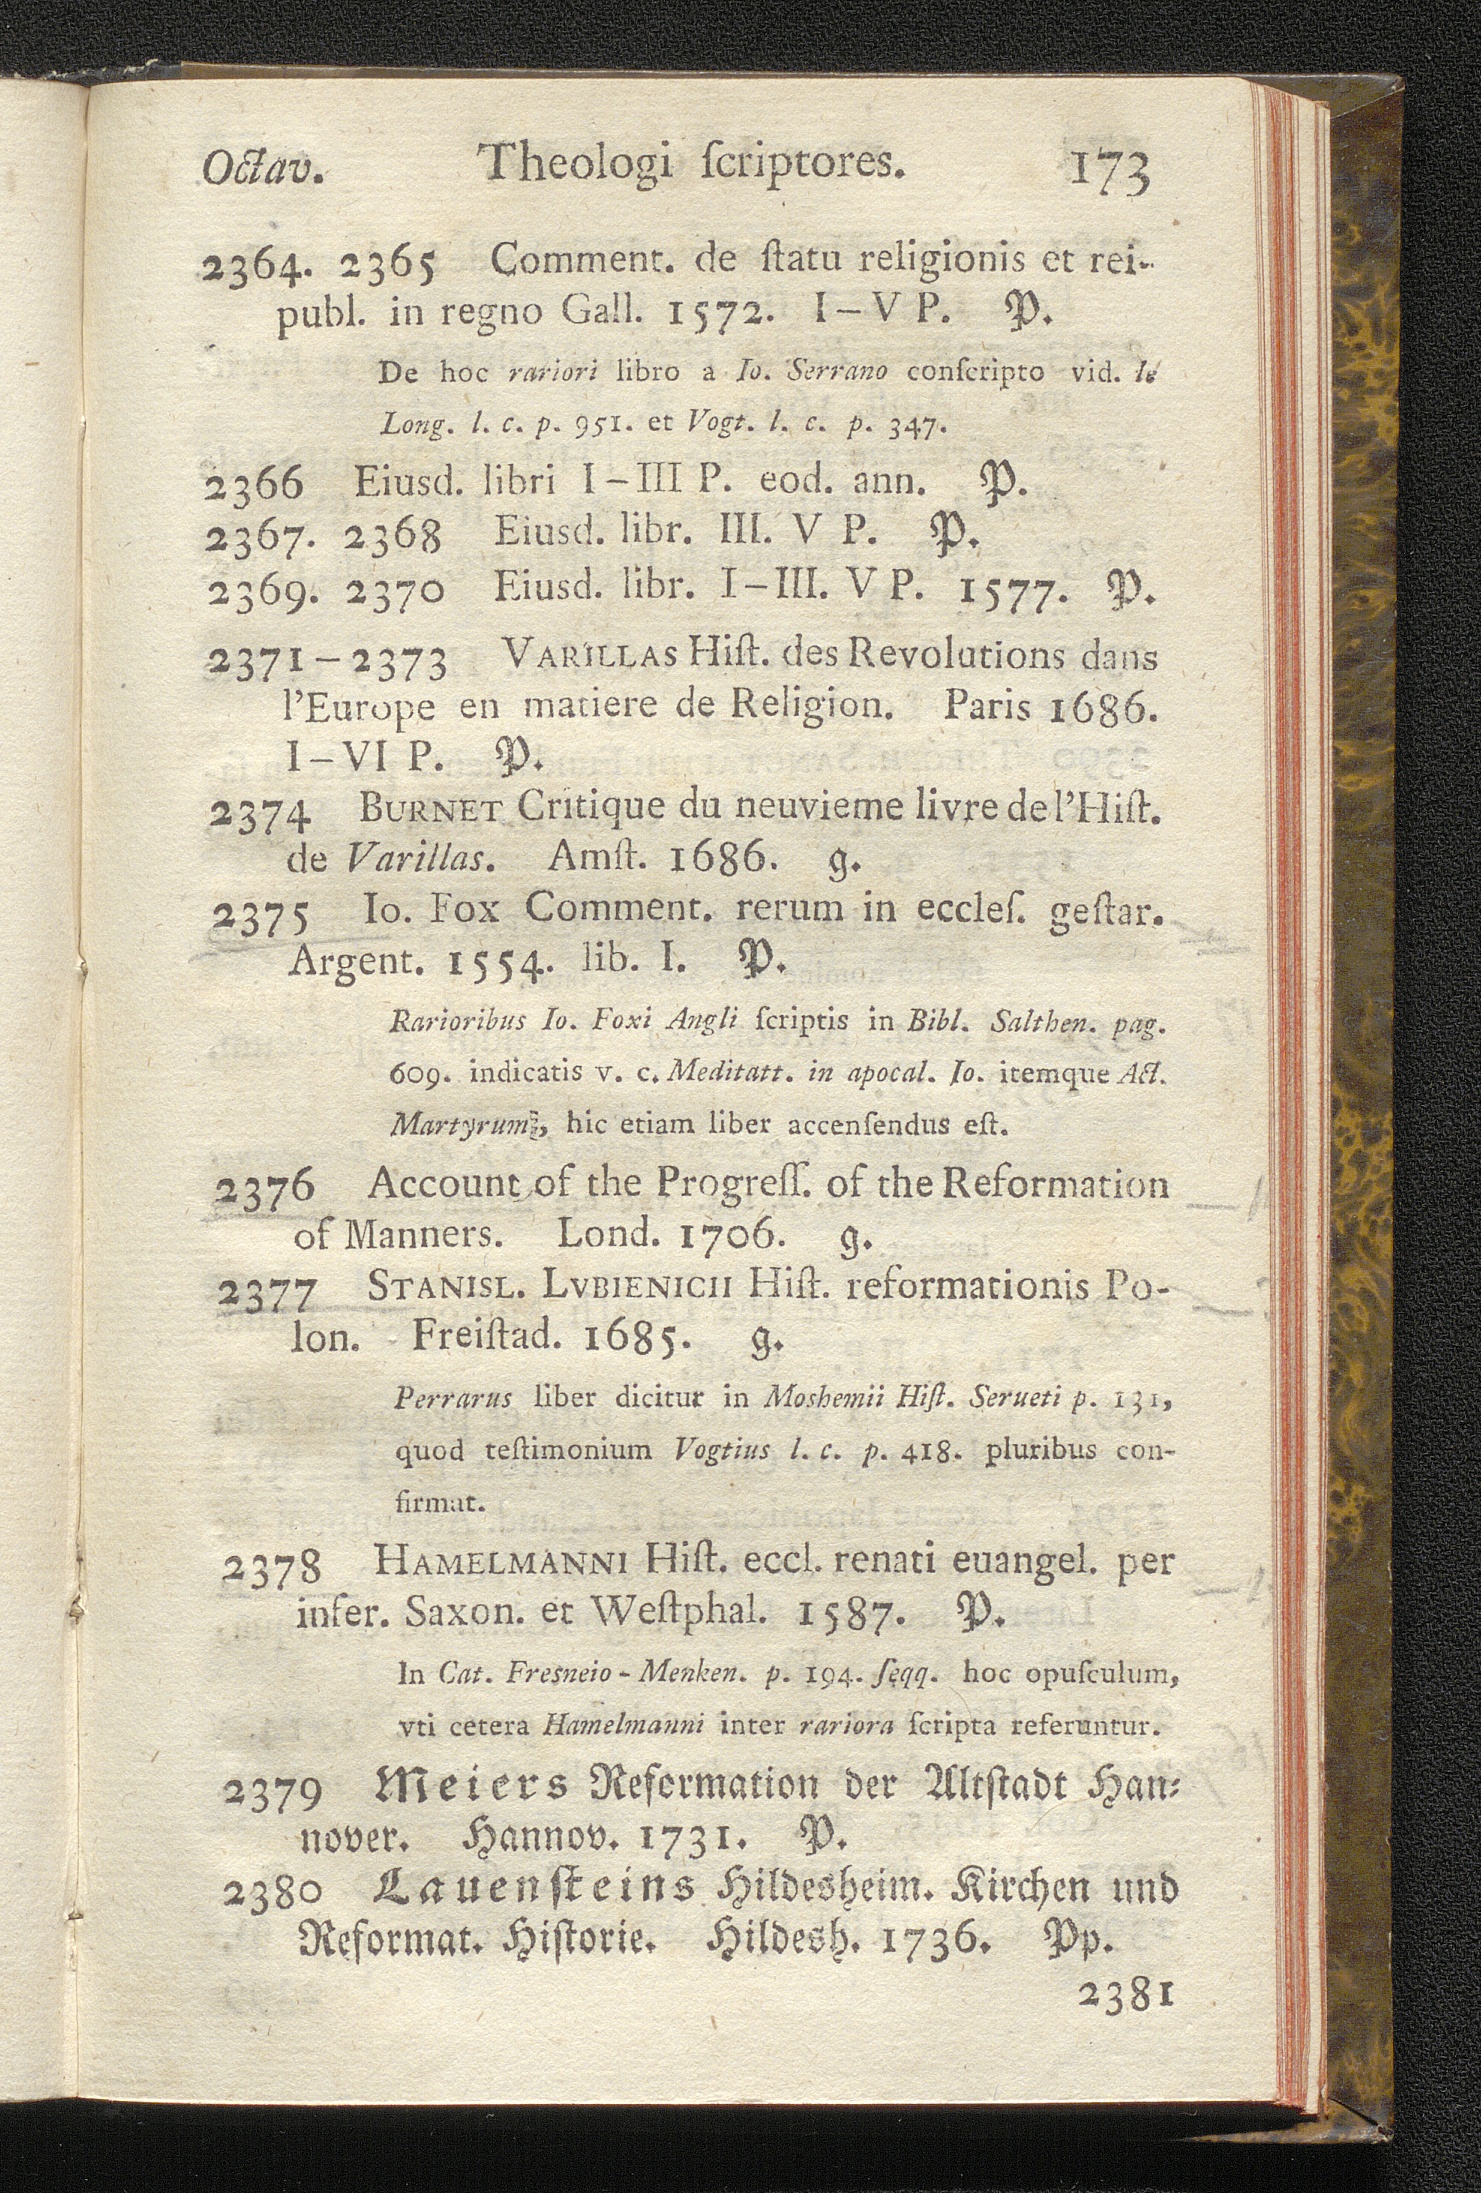 Octav. Theologi ſcriptores. 173
2364. 2365 Comment. de ſtatu religionis et rei-
publ. in regno Gall. 1572. I–V P. P.
De hoc rariori libro a Io. Serrano conſcripto vid. le
Long. l. c. p. 951. et Vogt. l. c. p. 347.
2366 Eiusd. libri I–III P. eod. ann. P.
2367. 2368 Eiusd. libr. III. V P. P.
2369. 2370 Eiusd. libr. I–III. V P. 1577. P.
2371–2373 VARILLAS Hiſt. des Revolutions dans
l'Europe en matiere de Religion. Paris 1686.
I–VI P. P.
2374 BURNET Critique du neuvieme livre de l'Hiſt.
de Varillas. Amſt. 1686. g.
2375 Io. Fox Comment. rerum in eccleſ. geſtar.
Argent. 1554. lib. I. P.
Rarioribus Io. Foxi Angli ſcriptis in Bibl. Salthen. pag.
609. indicatis v. c. Meditatt. in apocal. Io. itemque Act.
Martyrum, hic etiam liber accenſendus eſt.
2376 Account of the Progreſſ. of the Reformation
of Manners. Lond. 1706. g.
2377 STANISL. LVBIENICII Hiſt. reformationis Po-
lon. Freiſtad. 1685. g.
Perrarus liber dicitur in Moshemii Hiſt. Serueti p. 131,
quod teſtimonium Vogtius l. c. p. 418. pluribus con-
firmat.
2378 HAMELMANNI Hiſt. eccl. renati euangel. per
infer. Saxon. et Weſtphal. 1587. P.
In Cat. Fresneio-Menken. p. 194. ſeqq. hoc opuſculum,
vti cetera Hamelmanni inter rariora ſcripta referuntur.
2379 Meiers Reformation der Altſtadt Han⸗
nover. Hannov. 1731. P.
2380 Lauenſteins Hildesheim. Kirchen und
Reformat. Hiſtorie. Hildesh. 1736. Pp.
2381